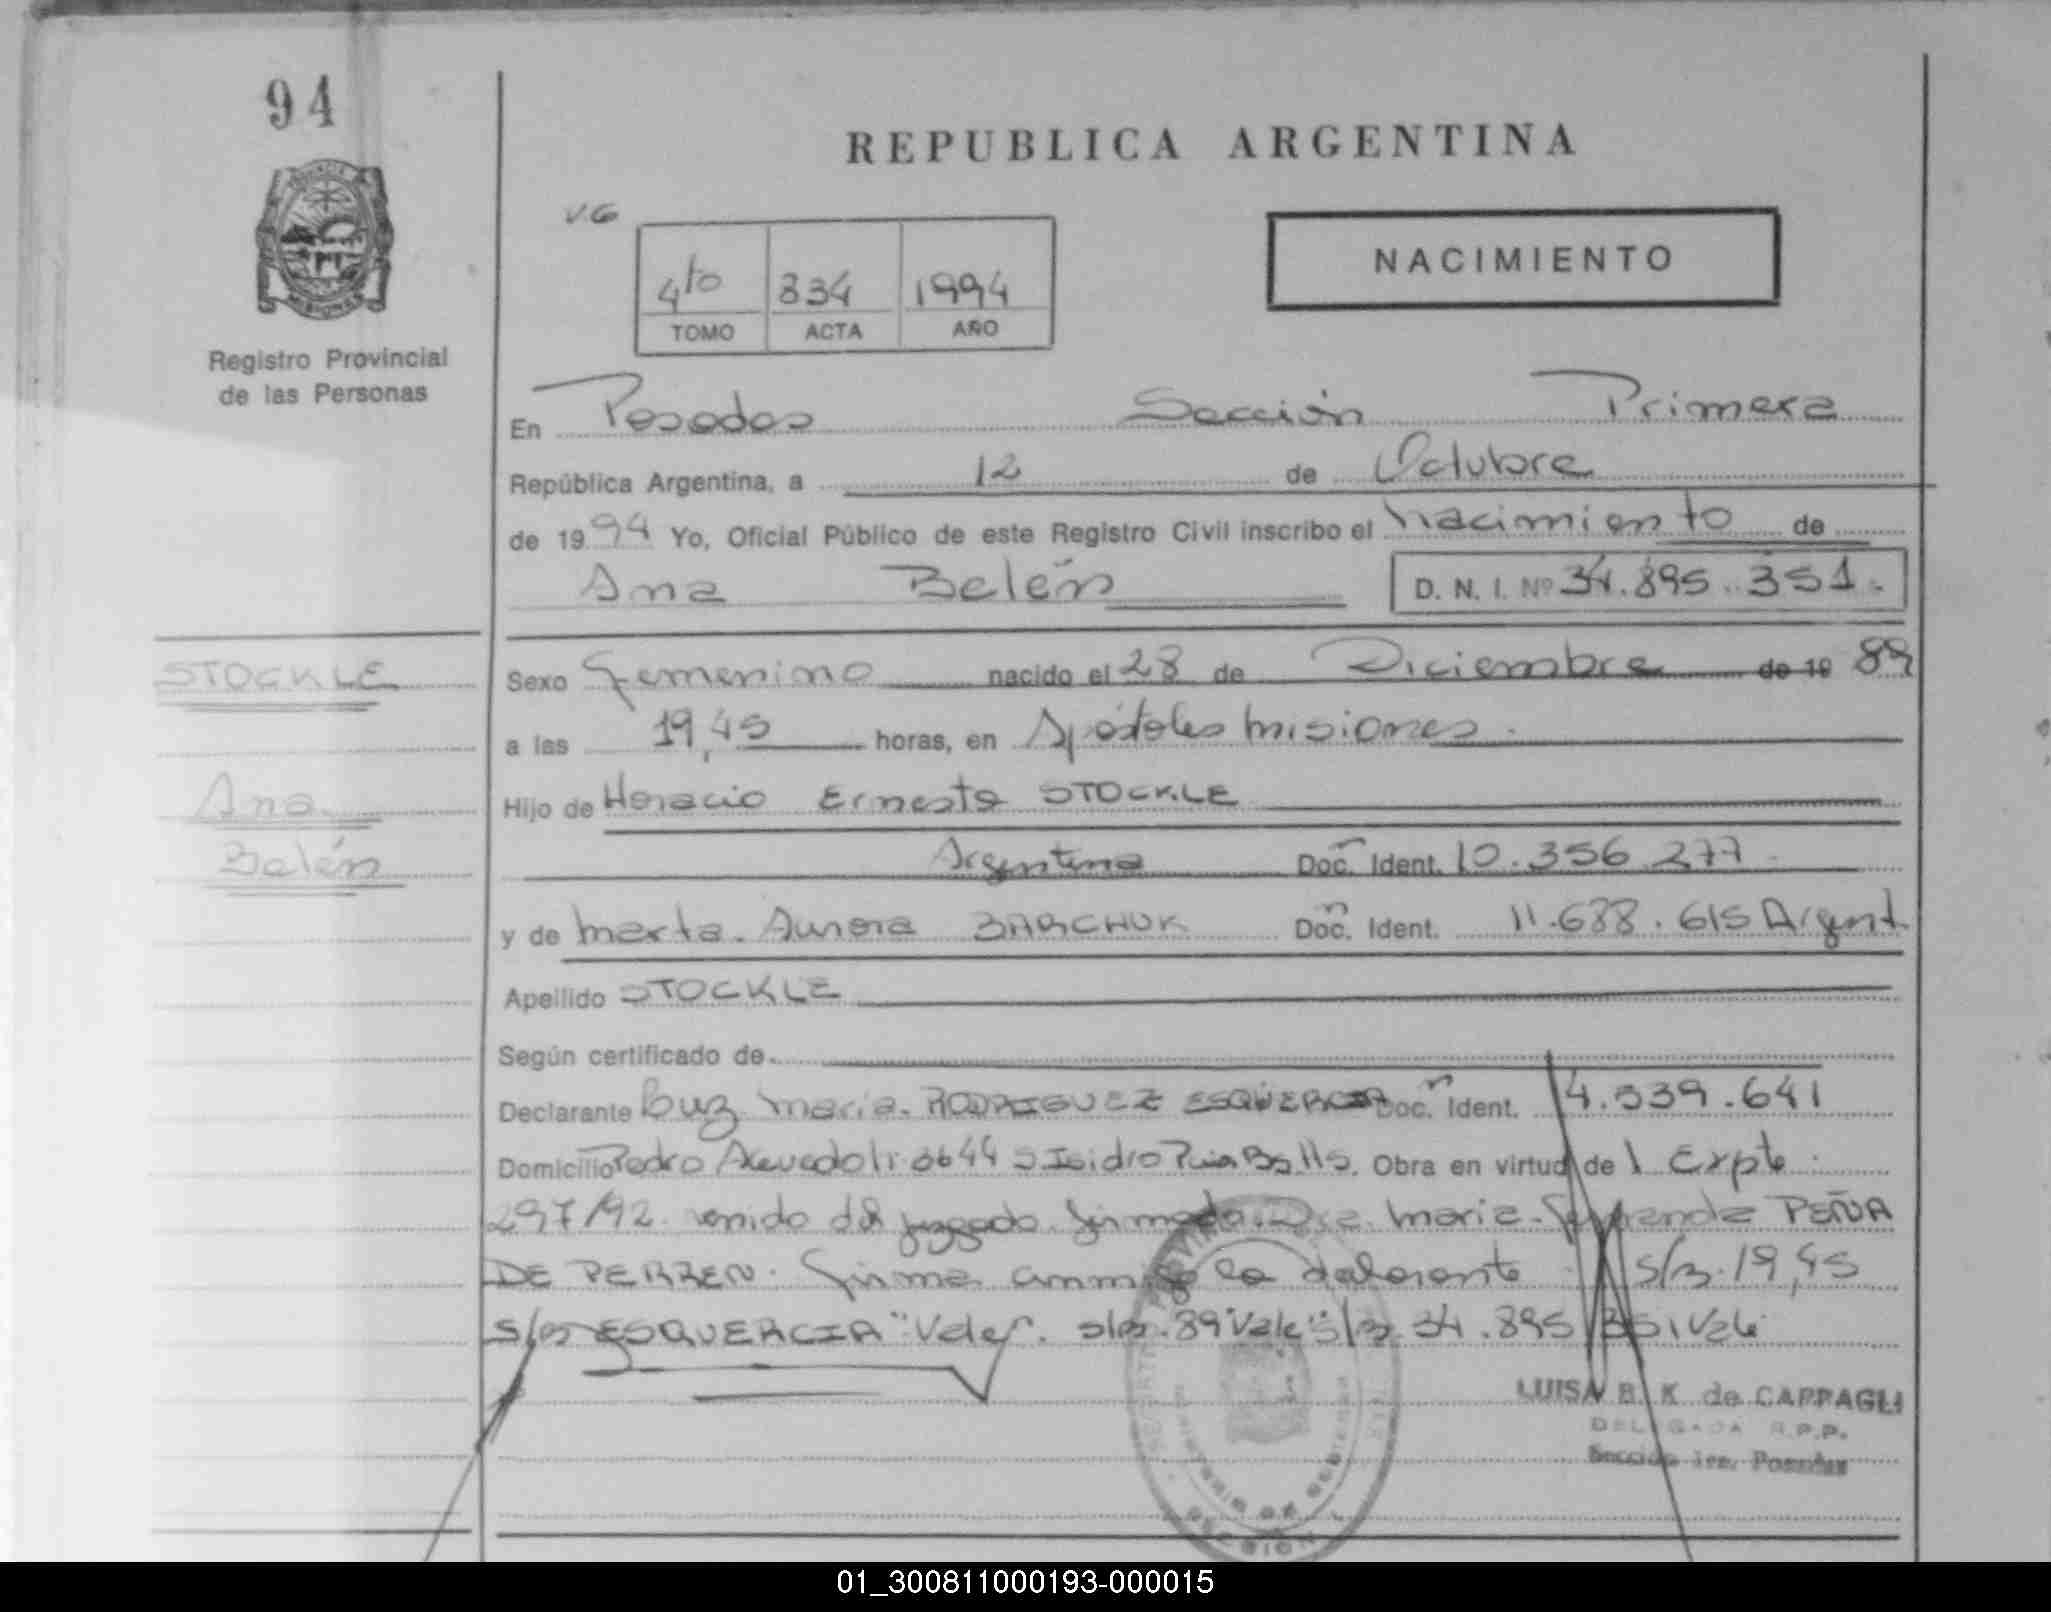 94
REPUBLICA ARGENTINA
V.G
NACIMIENTO
4to 834 1994
TOMO ACTA AÑO
Registro Provincial
de las Personas
En Posadas Sección Primera
República Argentina, a 12 de Octubre
de 1994 Yo, Oficial Público de este Registro Civil inscribo el nacimiento de
Ana Belén D. N. I. Nº 34.895.351.
STOCKLE
Sexo Femenino nacido el 28 de Diciembre de 19 89
a las 19,45 horas, en Apóstoles Misiones.
Ana
Hijo de Horacio Ernesto STOCKLE
Belén
Argentina Doc. Ident. 10.356.277.
y de Marta Aurora BARCHUK Doc. Ident. 11.688.615 Argent.
Apellido STOCKLE
Según certificado de
Declarante Luz María RODRIGUEZ ESQUERCIA Doc. Ident. 14.339.641
Domicilio Pedro 3644 S Isidro Obra en virtud de 1 Expte.
297/92 venido del juzgado firmado Dra. María Fernanda PEÑA
DE PERREN. Firma conmigo la declarante s/r 19,45
s/r ESQUERCIA "Vale". s/r. 89 "Vale" s/r 34.895.351 Vale
LUISA B. K de CAPPAGLI
DELEGADA R.P.P.
Sección 1ra. Posadas
01_300811000193-000015